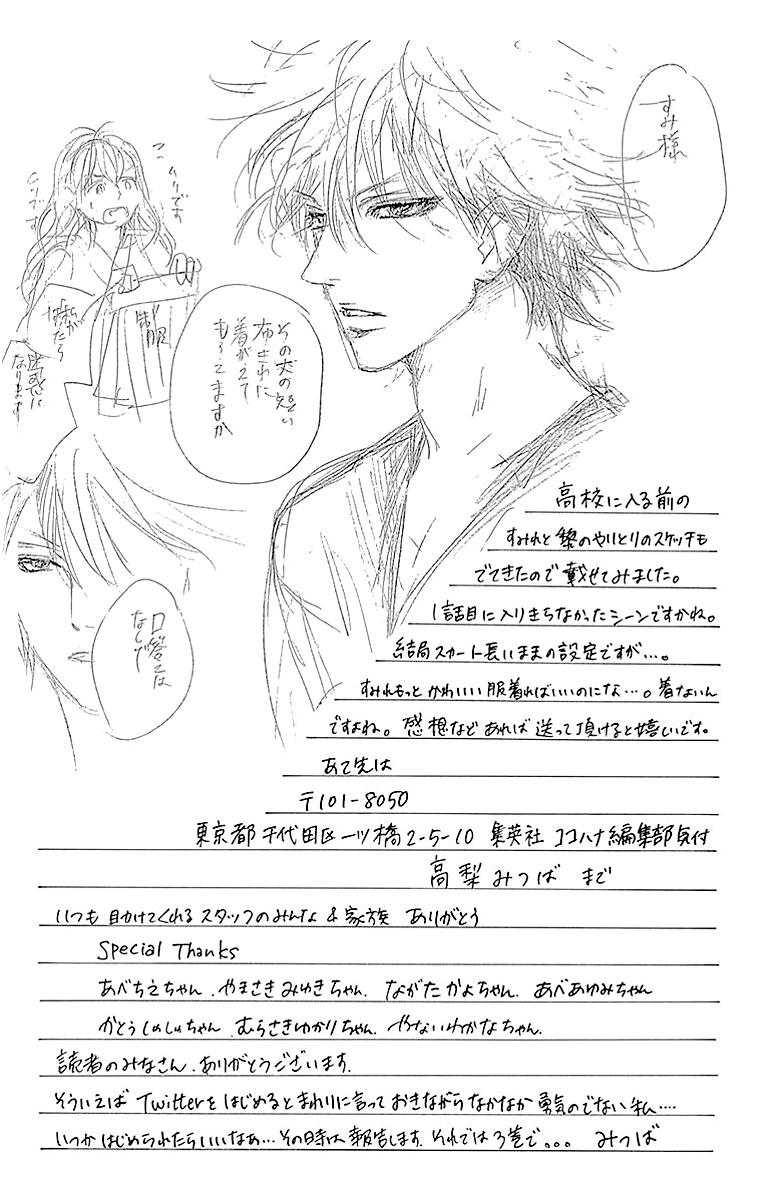 すみ様
ムリです
ムリです
制服
私が
はいたら
迷惑に
なります
その丈の短い
布きれに
着がえて
もらえますか
口答えは
なしで
高校に入る前の
すみれと 黎のやりとりのスケッチも
でてきたので 載せてみました。
1話目に入りきらなかったシーンですかね。
結局スカート長いままの設定ですが…。
すみれもっと かわいい服着ればいいのにな…。着ないん
ですよね。感想など あれば 送って頂けると嬉しいです。
あて先は
〒101-8050
東京都千代田区一ツ橋2-5-10 集英社 ココハナ編集部気付
高梨みつば まで
いつも 助けてくれる スタッフのみんな & 家族 ありがとう
Special Thanks
あべちえちゃん. やまさきみゆきちゃん. ながたかよちゃん. あべあゆみちゃん
かとうしめしゅちゃん. むらさきゆかりちゃん. やないわかなちゃん.
読者のみなさん. ありがとうございます.
そういえば Twitterを はじめると まわりに言って おきながら なかなか 勇気のでない 私….
いつか はじめられたら いいなぁ… その時は 報告します. それでは 3巻で。。。 みつば